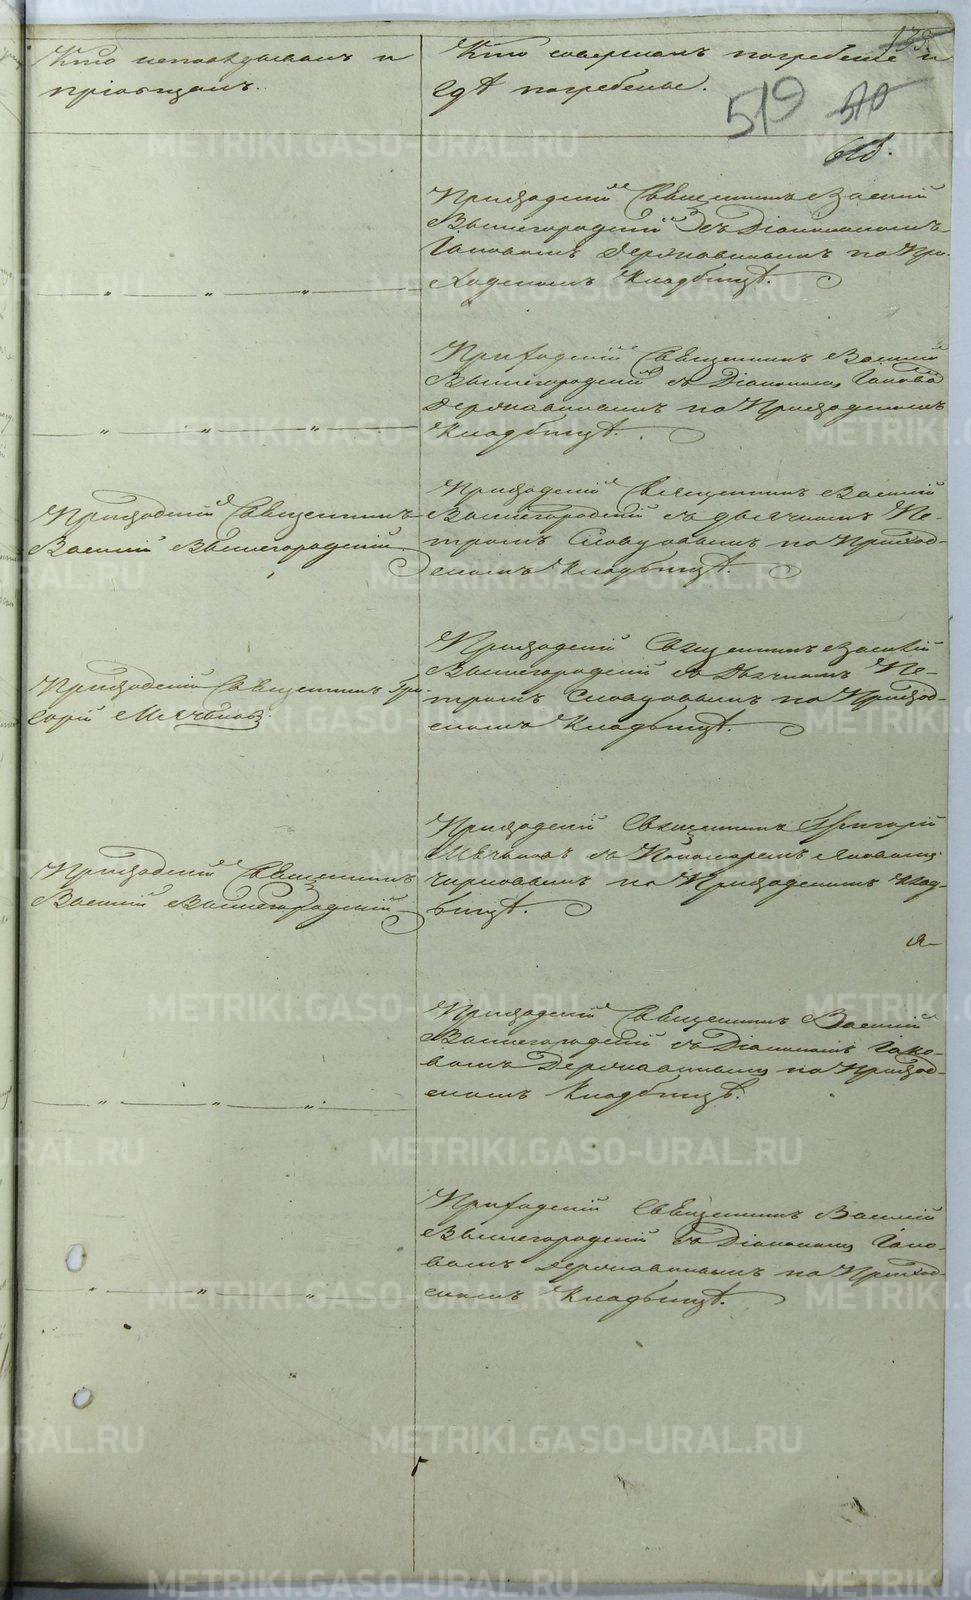 Кто исповѣдывалъ и
пріобщалъ.
Кто совершалъ погребеніе и
гдѣ погребены.
135
519
510
Приходскій Священникъ Василій
Вышегородскій съ Діакономъ
Іаковомъ Державинымъ на При-
ходскомъ Кладбищѣ.
Приходскій Священникъ Василій
Вышегородскій съ Діакономъ Іаковомъ
Державинымъ на Приходскомъ
Кладбищѣ.
Приходскій Священникъ
Василій Вышегородскій.
Приходскій Священникъ Василій
Вышегородскій съ дьячкомъ Пе-
тромъ Словцовымъ на Приход-
скомъ Кладбищѣ.
Приходскій Священникъ Гри-
горій Мячковъ.
Приходскій Священникъ Василій
Вышегородскій съ Дьячкомъ Пе-
тромъ Словцовымъ на Приход-
скомъ Кладбищѣ.
Приходскій Священникъ
Василій Вышегородскій
Приходскій Священникъ Григорій
съ Пономаремъ
на Приходскомъ Клад-
бищѣ.
Приходскій Священникъ Василій
Вышегородскій съ Діакономъ Іако-
вомъ Державинымъ на Приход-
скомъ Кладбищѣ.
Приходскій Священникъ Василій
Вышегородскій съ Діакономъ Іако-
вомъ Державинымъ на Приход-
скомъ Кладбищѣ.
METRIKI.GASO-URAL.RU